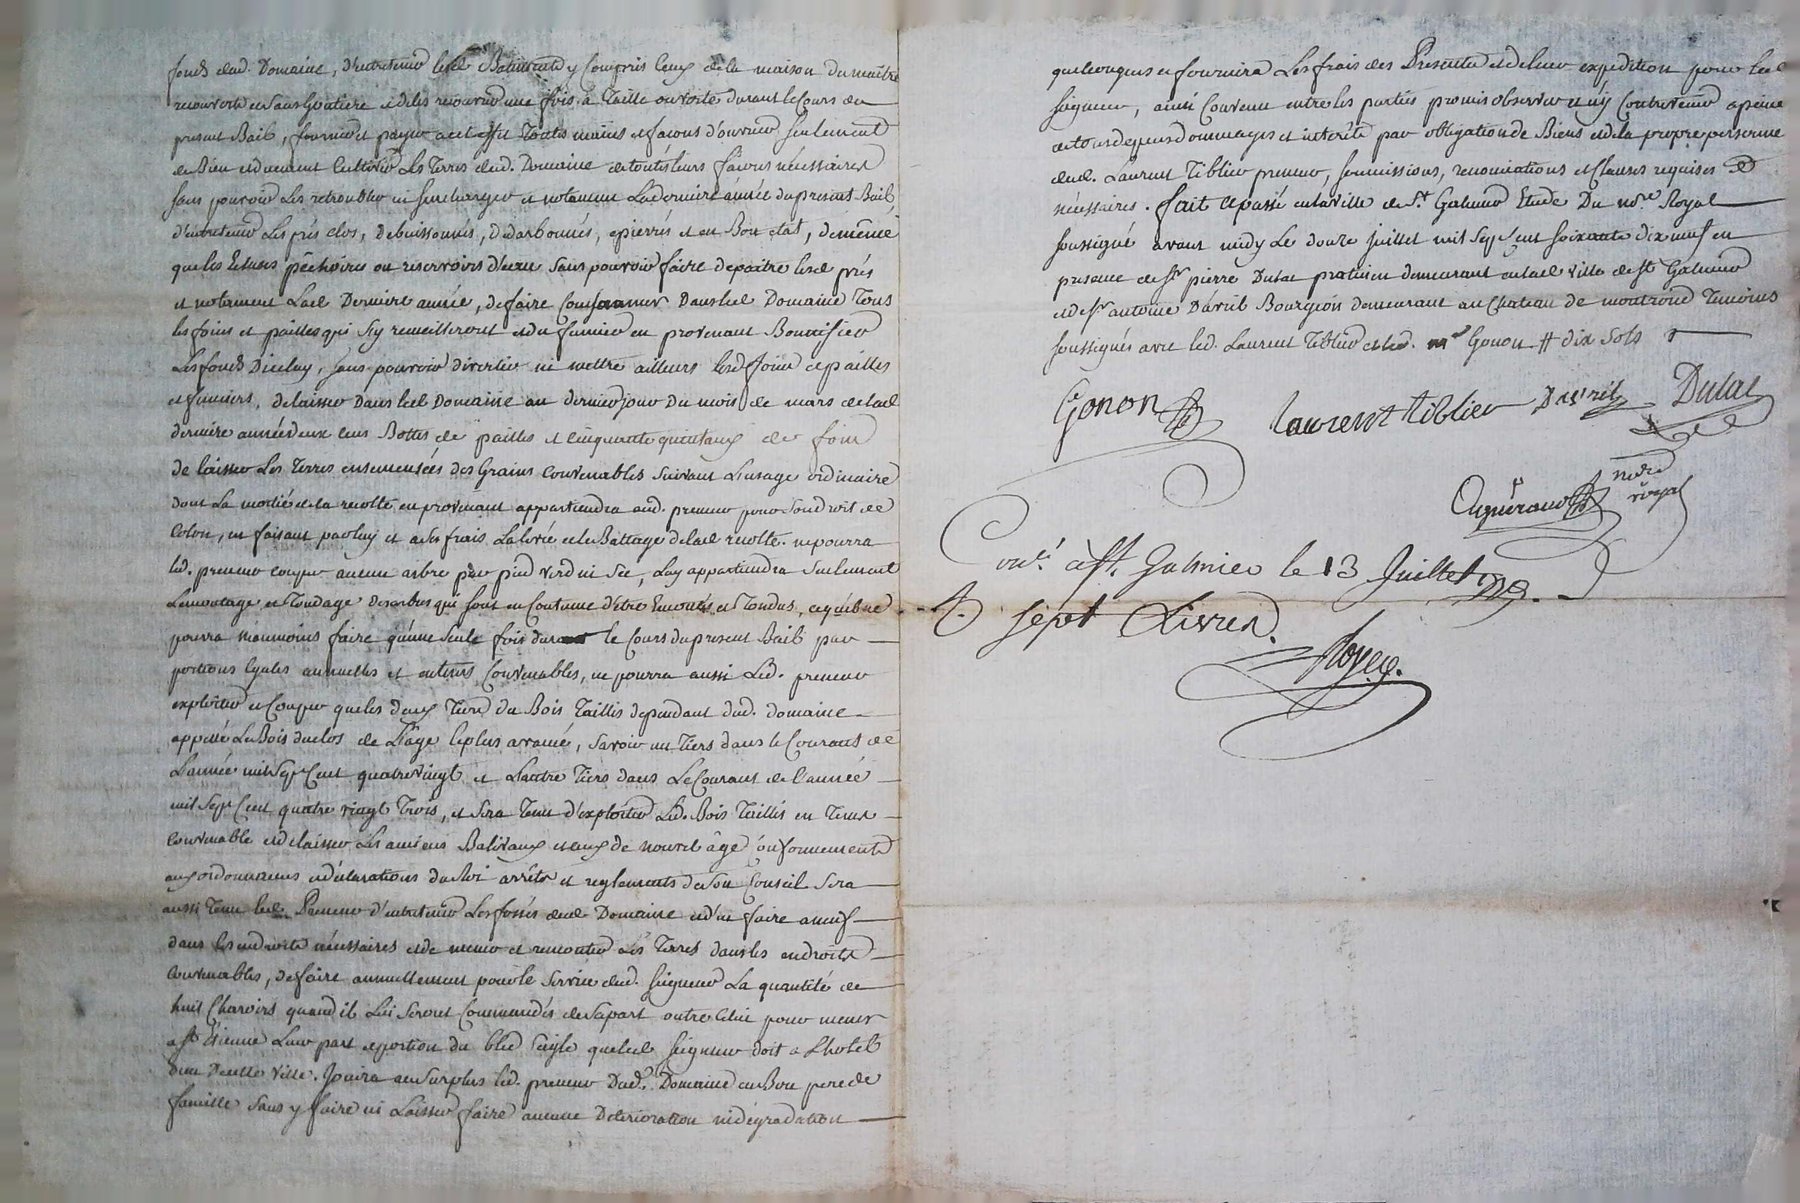 fonds dud. Domaine, d'entretenir lesd. Batiments y Compris Ceux de la maison du maître
recouverts et sans Goutiere et de les recouvrir une fois à Taille ouverte durant le Cours du
present Bail, fournir et payer a cet effet Toutes mains et facons d'ouvrier seulement
de Bien et duement Cultiver Les Terres dud. Domaine de toutes leurs facons nécessaires
sans pouvoir Les retroubler ni surcharger et notament La derniere année du present Bail,
d'entretenir Les prés clos, débuissonnés, dédarbonnés, epierrés et en Bon etat, de même
que les Ecluses pêchoires ou reservoirs d'eau sans pouvoir faire depaitre lesd. prés
et notament Lad. Derniere année, de faire Consommer Dans led. Domaine Tous
les foins et pailles qui s'y recueilleront et du fumier en provenant Bonnifier
Les fonds D'iceluy, sans pouvoir divertir ni mettre ailleurs lesd. foins et pailles
et fumiers, de laisser Dans led. Domaine au dernier jour Du mois de mars de lad.
derniere année deux cens Bottes de pailles et cinquante quintaux de foin
de laisser Les Terres ensemensées des Grains convenables suivant L'usage ordinaire
dont La moitié de la recolte en provenant appartiendra aud. preneur pour son droit de
Colon, en faisant par luy et a ses frais La levée et le Battage de lad. recolte. ne pourra
led. preneur couper aucun arbre par pied verd ni sec, Luy appartiendra seulement
L'emontage et Tondage des arbres qui sont en Coutume d'être Emontés et Tondus, ce qu'il ne
pourra néanmoins faire qu'une seule fois durant le Cours du present Bail par
portions Egales annuelles et en tems Convenables, ne pourra aussi Led. preneur
exploiter et Couper que les deux Tiers du Bois Taillis dependant dud. domaine
appellé Le Bois du clos de L'âge le plus avancé, savoir un Tiers dans le Courant de
L'année mil Sept Cent quatre vingt et L'autre Tiers dans Le Courant de l'année
mil Sept Cent quatre vingt Trois, et sera Tenu d'exploiter Led. Bois Taillis en Tems
convenable et de laisser Les anciens Balivaux et ceux de nouvel âge conformement
aux ordonnances et déclarations du Roi arrêts et reglements de son Conseil sera
aussi Tenu led. Preneur d'entretenir Les fossés dud. Domaine et d'en faire a neuf
dans Les endroits nécessaires et de mener et remonter Les Terres dans les endroits
convenables, de faire annuellement pour le service dud. Seigneur La quantité de
huit Charois quand ils Lui seront Commandés de sa part outre Celui pour mener
a St. Etienne Leur part et portion du bled Seigle que led. Seigneur doit a L'hotel
Dieu De cette ville. Jouira au surplus led. preneur Dud. Domaine en Bon pere de
famille sans y faire ni Laisser faire aucune Déterioration ni dégradation
quelconques et fournira Les frais des Presentes et de leur expédition pour led.
Seigneur, ainsi Convenu entre les parties promis observer et n'y Contrevenir a peine
de tous depens dommages et interêts par obligation de Biens et de la propre personne
dud. Laurent Tiblier preneur, soumissions, renonciations et Clauses requises et
nécessaires. fait et passé en la ville de St. Galmier Etude Du nore. Royal
soussigné avant midy Le douze Juillet mil Sept Cent soixante dix neuf en
presence de Sr. pierre Dulac praticien demeurant en lad. ville de St. Galmier
et de Sr. antoine Davril Bourgeois demeurant au Chateau de montrond Temoins
soussignés avec led. Laurent Tiblier et led. mre. Gonon # dix sols
Gonon Laurent tiblier Davril Dulac
nore. royal
Con.té à St. Galmier le 13 Juillet 1779.
R. sept Livres.